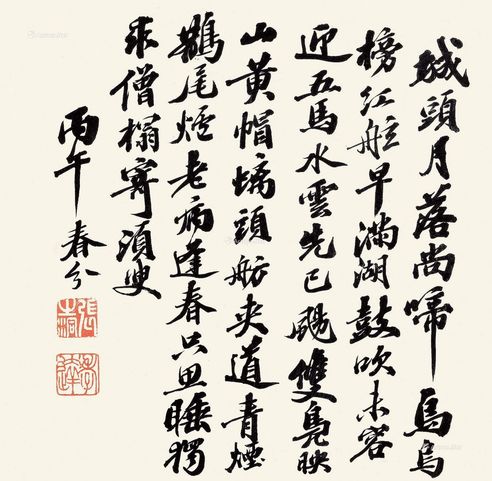 城頭月落尚啼烏烏
榜紅舷早滿湖鼓吹未容
迎五馬水雲先已颺雙鳧映
山黃帽螭頭舫夾道青煙
鵲尾爐老病逢春只思睡獨
求僧榻寄須臾
丙午春分